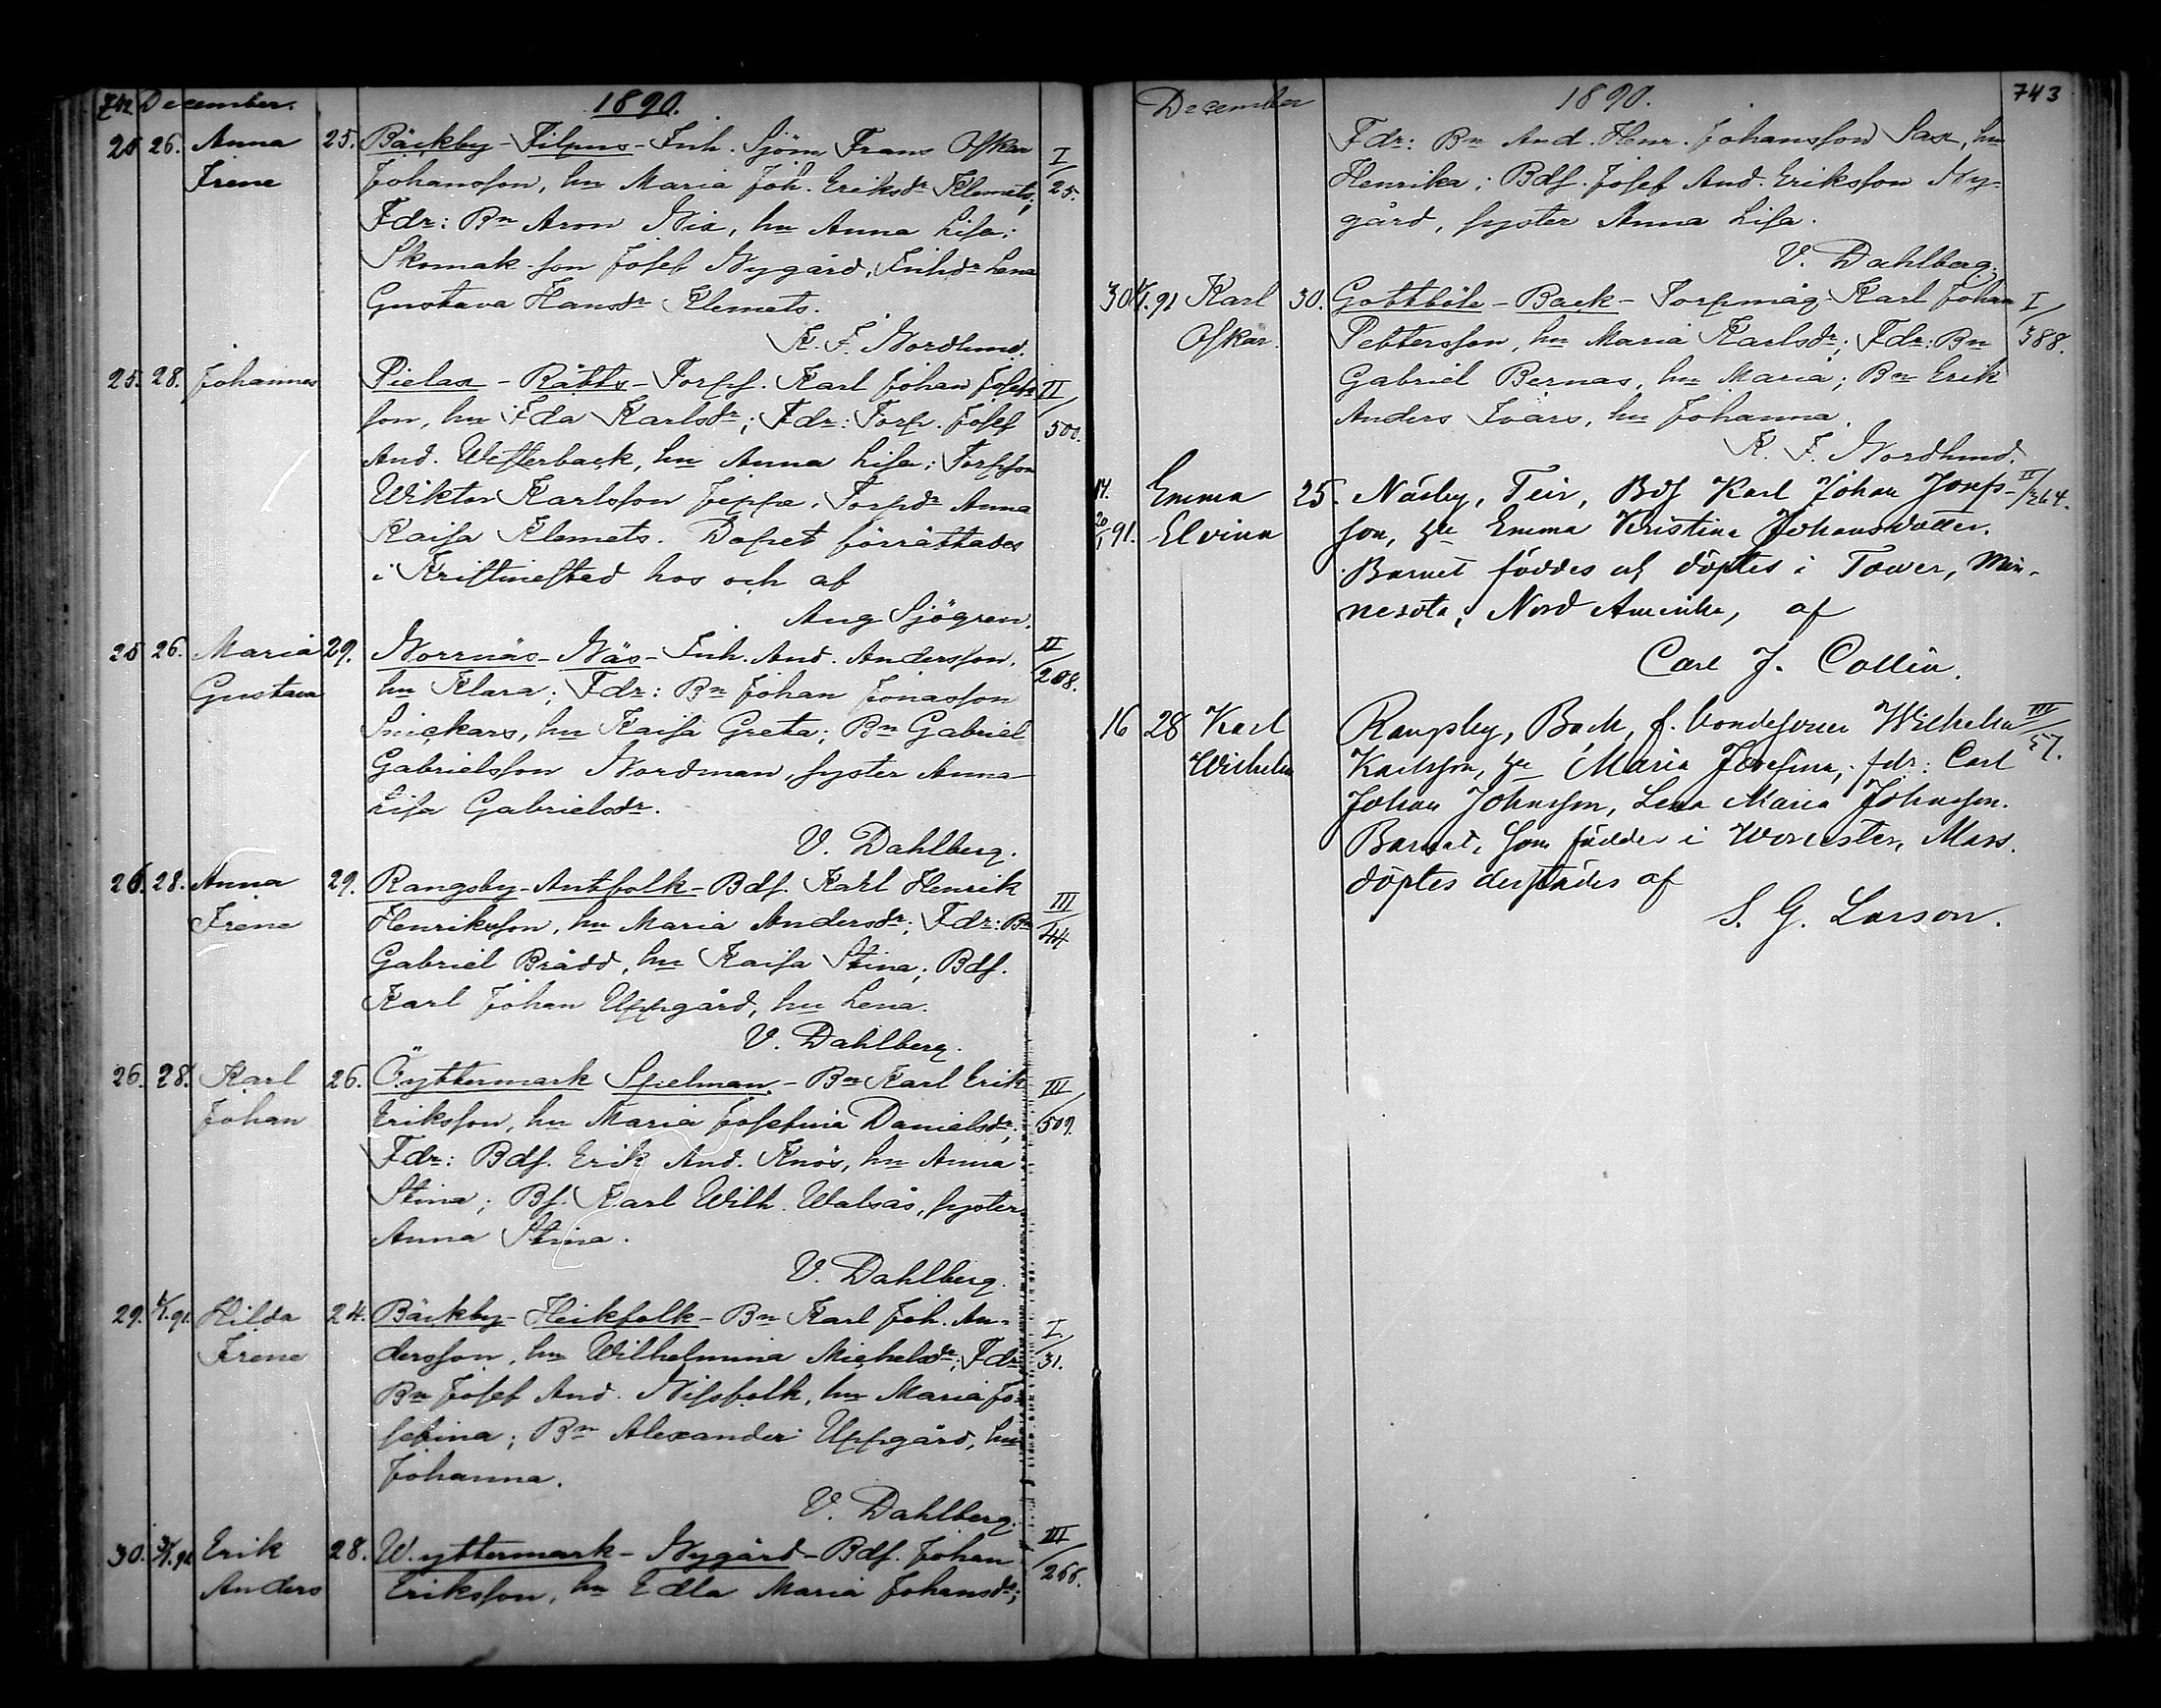 742. December. 1890.
25 26. Anna 25. Bäckby - Filpus - Inh. Sjöm Frans Oskar I/25.
Irene Johansson, hu Maria Joh. Eriksdr Klemets;
Fdr: Bn Aron Nix, hu Anna Lisa;
Skomak. son Josef Nygård, Inhdr Lena
Gustava Hansdr Klemets.
K. F. Nordlund.
25. 28. Johannes Pielax - Rabbs - Torpf. Karl Johan Josefs- II/500.
son, hu Ida Karlsdr; Fdr: Torp. Josef
And. Westerback, hu Anna Lisa; Torpson
Wiktor Karlsson Jeppe, Torpdr Anna
Kaisa Klemets. Dopet förrättades
i Kristinestad hos och af
Aug Sjögren.
25 26. Maria 29. Norrnäs - Näs - Inh. And. Andersson, II/208.
Gustava hu Klara; Fdr: Bn Johan Jonasson
Snickars, hu Kaisa Greta; Bn Gabriel
Gabrielsson Nordman, syster Anna
Lisa Gabrielsdr.
V. Dahlberg.
26. 28. Anna 29. Rangsby - Antfolk - Bdf. Karl Henrik III/44
Irene Henriksson, hu Maria Andersdr; Fdr: Bn
Gabriel Brådd, hu Kaisa Stina; Bdf.
Karl Johan Uppgård, hu Lena.
V. Dahlberg.
26. 28. Karl 26. Ö.yttermark Spelman - Bn Karl Erik III/509.
Johan Eriksson, hu Maria Josefina Danielsdr;
Fdr: Bdf. Erik And. Knös, hu Anna
Stina; Bf. Karl Wilh. Walsås, syster
Anna Stina.
V. Dahlberg.
29. 6/1.91. Hilda 24. Bäckby - Heikfolk - Bn Karl Joh. An- I/31.
Irene dersson, hu Wilhelmina Michelsdr; Fdr
Bn Josef And. Nissfolk, hu Maria Jo-
sefina; Bn Alexander Uppgård, hu
Johanna.
V. Dahlberg.
30. /1.91 Erik 28. W.yttermark - Nygård - Bdf. Johan III/266.
Anders Eriksson, hu Edla Maria Johansdr;
December 1890. 743
Fdr: Bn And. Henr. Johansson Sax, hu
Henrika; Bdf. Josef And. Eriksson Ny-
gård, syster Anna Lisa.
V. Dahlberg.
30. /1.91 Karl 30. Gottböle - Back - Torpmåg Karl Johan I/388.
Oskar. Pettersson, hu Maria Karlsdr; Fdr: Bn
Gabriel Bernas, hu Maria; Bn Erik
Anders Ivars, hu Johanna.
K. F. Nordlund.
14. Emma 25. Näsby, Teir, Bdf Karl Johan Josefs- II/264.
20/1 91. Elvina son, hu Emma Kristina Johansdotter.
Barnet föddes och döptes i Tower, Min-
nesota, Nord Amerika, af
Carl J. Collin.
16 28 Karl Rangsby, Back, f. bondesonen Wilhelm III/57.
Wilhelm Karlsson, hu Maria Josefina; fdr: Carl
Johan Johnsson, Lena Maria Johnsson.
Barnet, som föddes i Worcester, Mass.
döptes derstädes af
S. G. Larson.